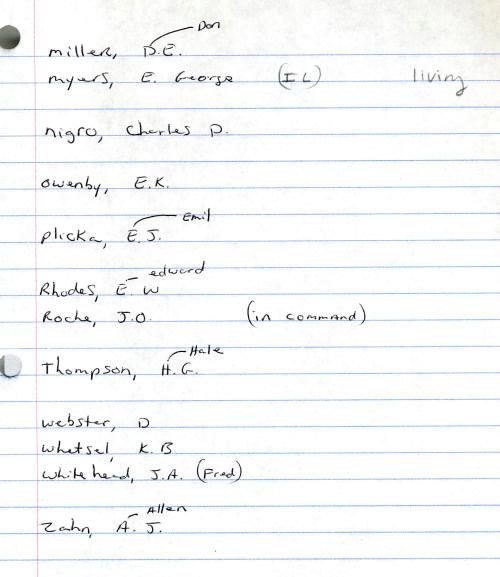 Don
miller, D.E.
myers, E. George (IL) living
nigro, Charles D.
owenby, E.K.
Emil
plicka, E.J.
edward
Rhodes, E. W
Roche, J.O. (in command)
Hale
Thompson, H.G.
webster, D
whetsel, K.B
whitehead, J.A. (Fred)
Allen
Zahn, A. J.